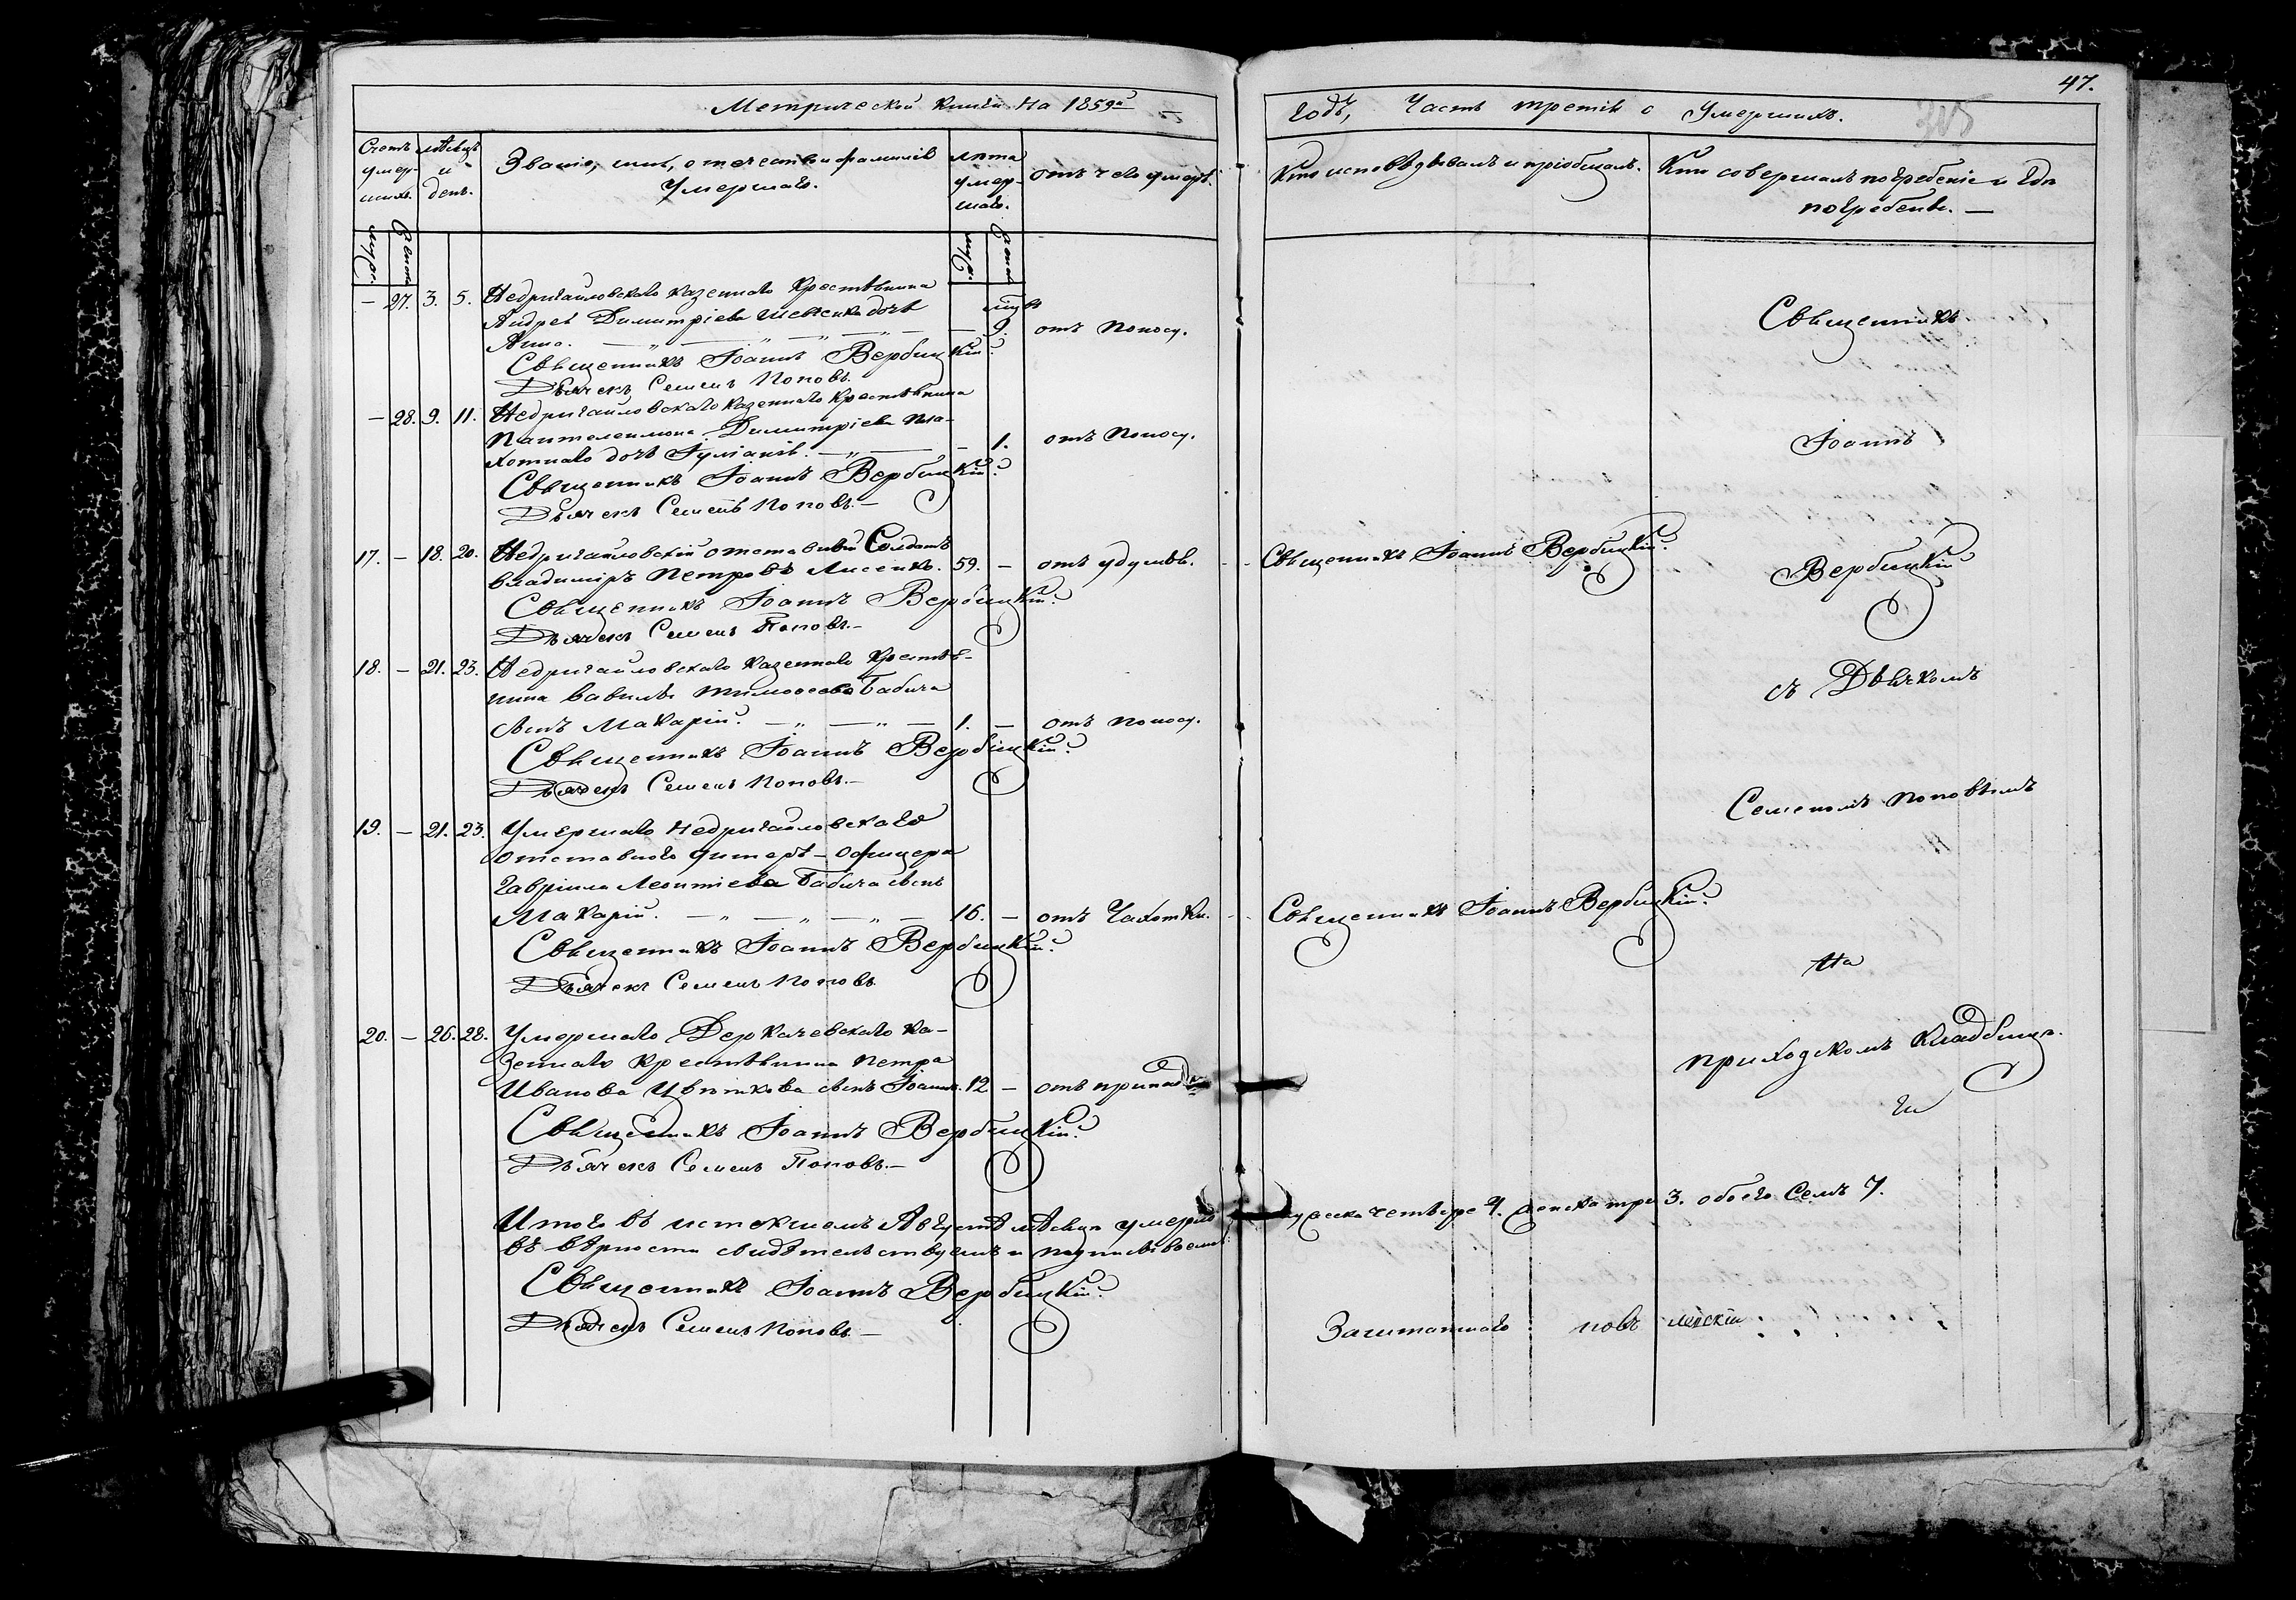 Метрической книги на 1859й
Счетъ умер-шихъ.
мѣсяцъ и день.
Званіе, имя, отчество и фамилія умершаго.
лѣта умер-шаго.
отъ чего умеръ.
муж. женск.
муж. женск.
— 27. 3. 5. Недригайловскаго казеннаго крестьянина
Андрея Димитріева Шевченка дочь
Анна. — 9. отъ поносу.
Священникъ Іоаннъ Вербицкій.
Дьячекъ Семенъ Поповъ.
— 28. 9. 11. Недригайловскаго казеннаго крестьянина
Пантелеимона Димитріева Пла-
хотнаго дочь Іуліанія. — 1. отъ поносу.
Священникъ Іоаннъ Вербицкій.
Дьячекъ Семенъ Поповъ.—
17. — 18. 20. Недригайловскій отставный Солдатъ
Владиміръ Петровъ Лисенко. 59. — отъ удушья.
Священникъ Іоаннъ Вербицкій.
Дьячекъ Семенъ Поповъ.—
18. — 21. 23. Недригайловскаго казеннаго крестья-
нина Вавилы Тимоѳеева Бабича
сынъ Макарій. 1. — отъ поносу.
Священникъ Іоаннъ Вербицкій.
Дьячекъ Семенъ Поповъ.—
19. — 21. 23. Умершаго Недригайловскаго
отставного унтеръ-офицера
Гавріила Леонтіева Бабича сынъ
Макарій. 16. — отъ чахотки.
Священникъ Іоаннъ Вербицкій.
Дьячекъ Семенъ Поповъ
20. — 26. 28. Умершаго Деркачевскаго ка-
зеннаго крестьянина Петра
Иванова Цвѣткова сынъ Іоаннъ. 12 —
Священникъ Іоаннъ Вербицкій.
Дьячекъ Семенъ Поповъ.—
Итого въ истекшемъ Августѣ мѣсяцѣ умерло
въ вѣрности свидѣтельствуемъ и подписываемъ:
Священникъ Іоаннъ Вербицкій.
Дьячекъ Семенъ Поповъ —
47.
Годъ, Часть третія о умершихъ.
Кто исповѣдывалъ и пріобщалъ.
Кто совершалъ погребеніе и гдѣ
погребены.—
Священникъ
Іоаннъ
Священникъ Іоаннъ Вербицкій.
Вербицкій
съ Дьячкомъ
Семеномъ Поповымъ
Священникъ Іоаннъ Вербицкій.
На
приходскомъ кладбищѣ.
мужеска четыре 4. женска три 3. обоего Семь 7.